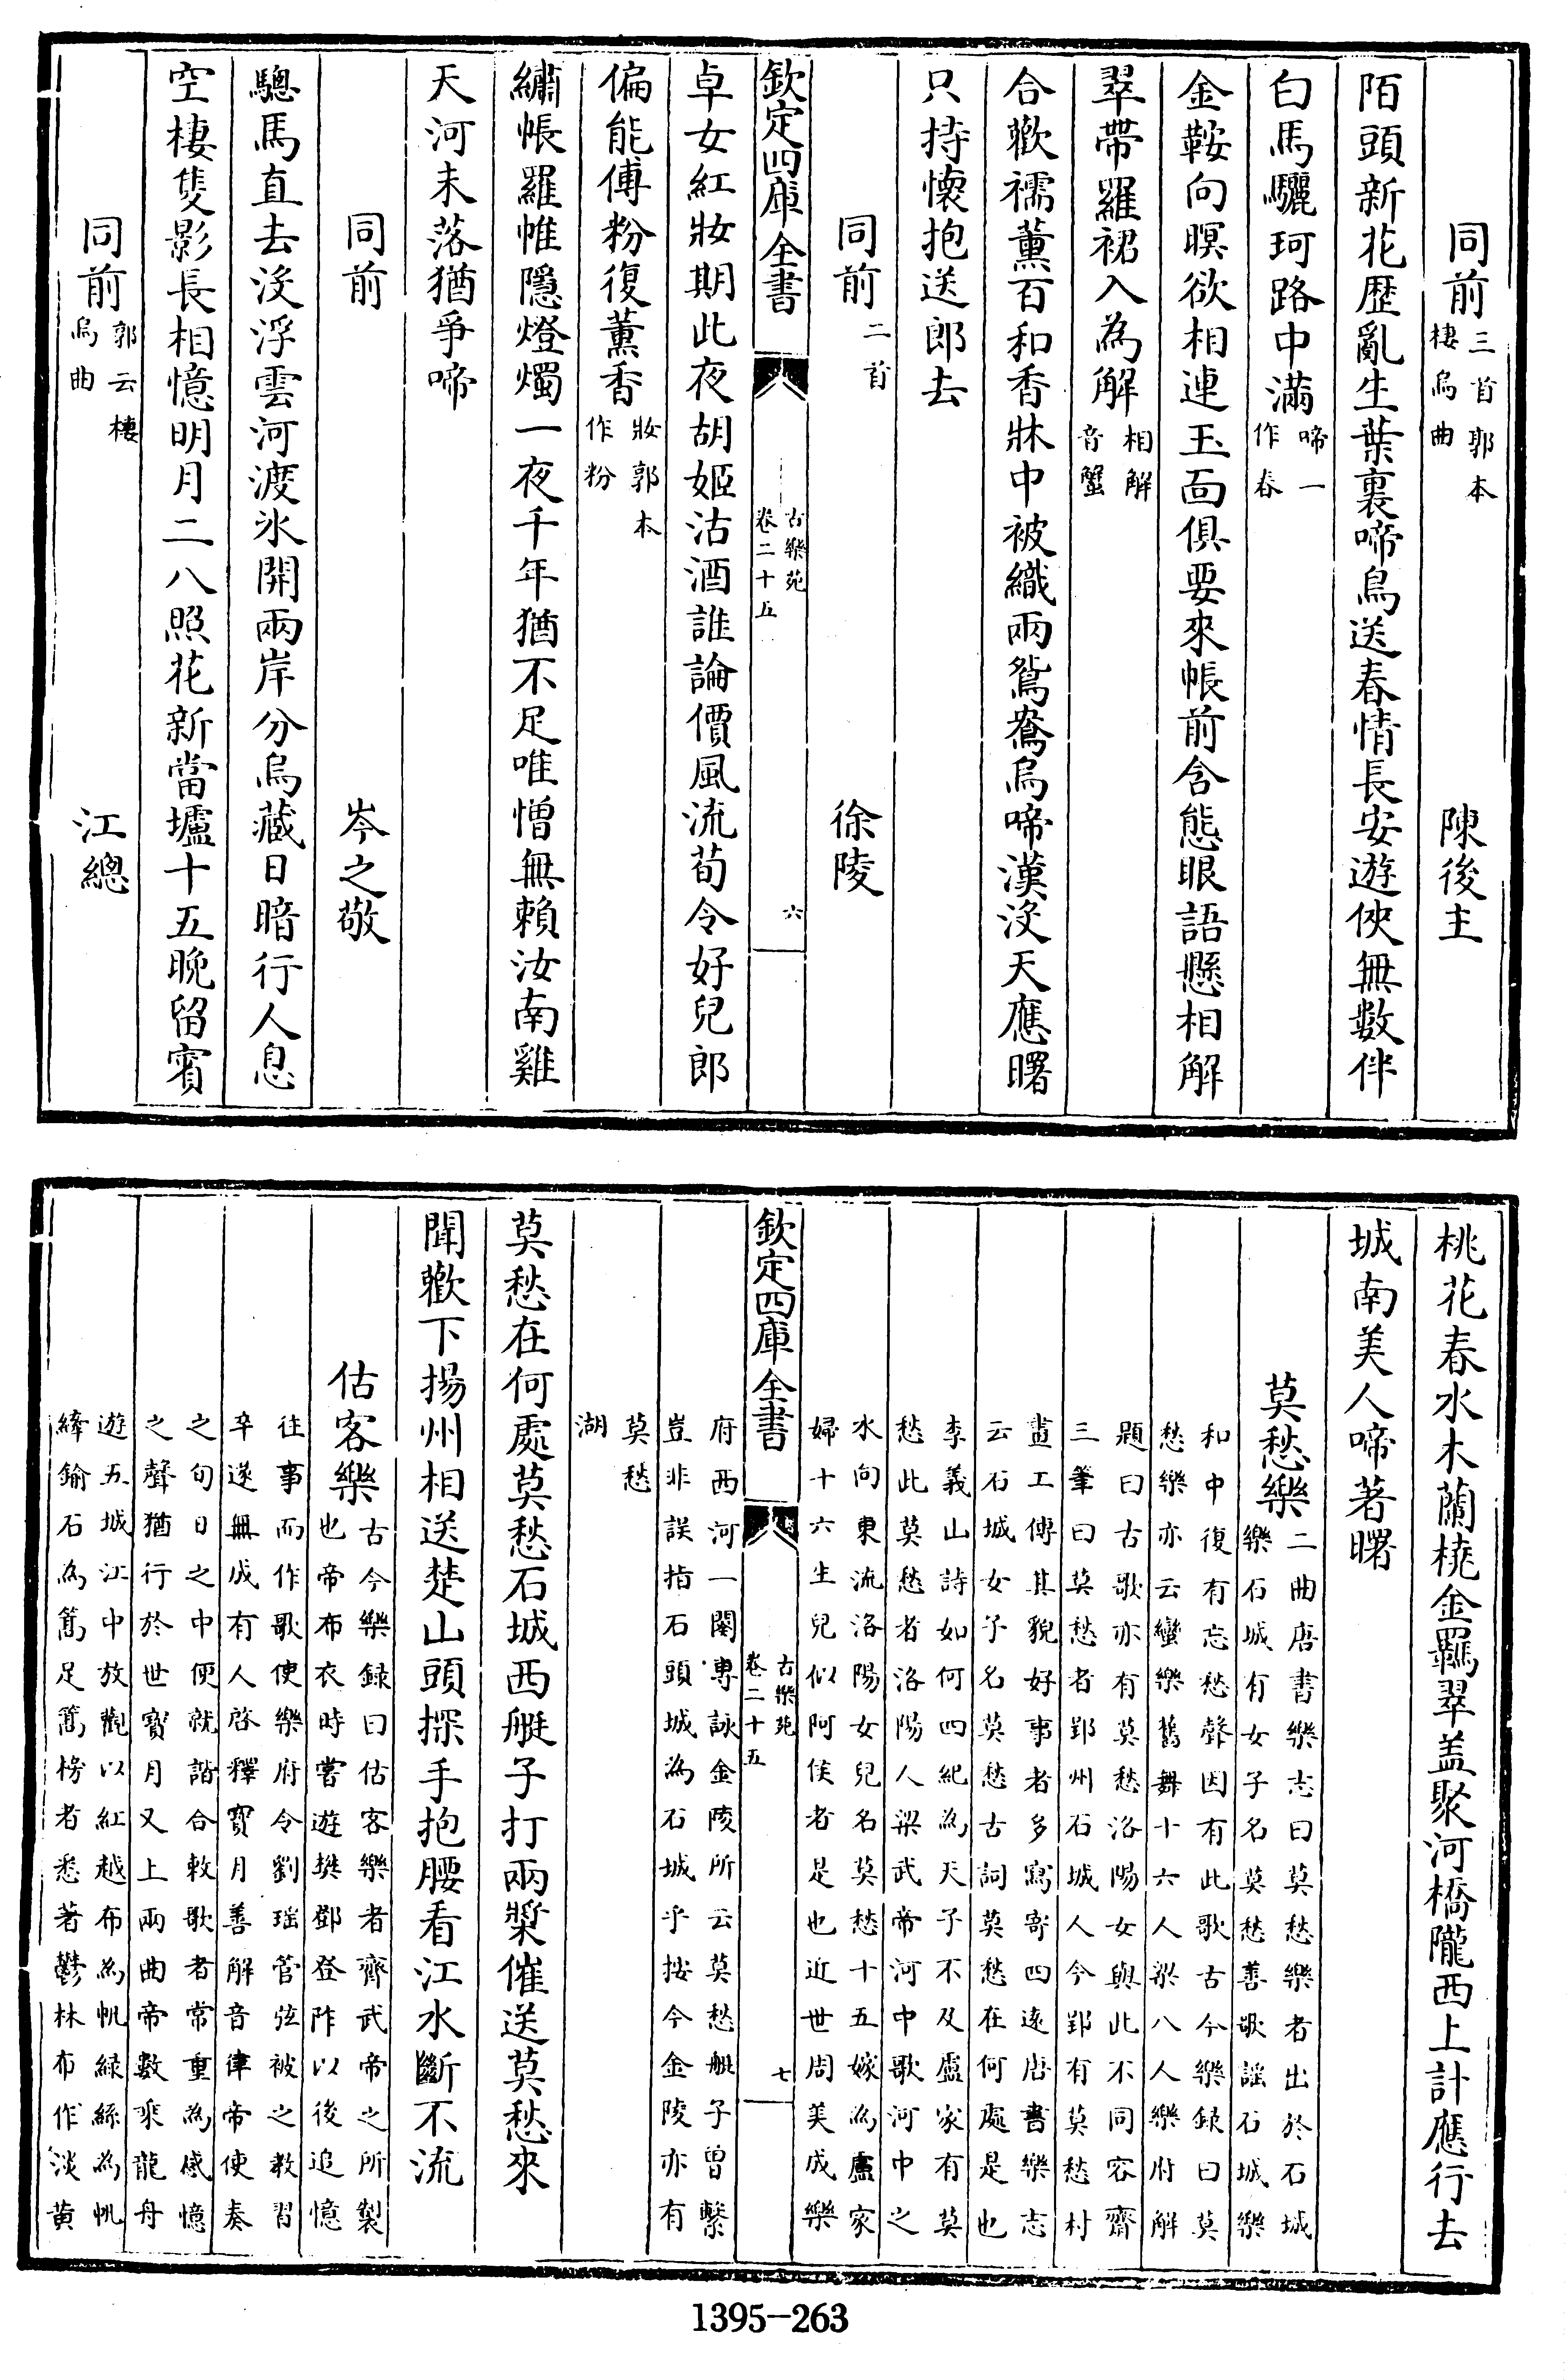 同前三首郭本棲烏曲 陳後主
陌頭新花歷亂生葉裏啼鳥送春情長安遊俠無數伴
白馬驪珂路中滿啼一作春
金鞍向暝欲相連玉面俱要來帳前含態眼語懸相解
翠帶羅裙入為解相解音蟹
合歡襦薰百和香牀中被織兩鴛鴦烏啼漢沒天應曙
只持懷抱送郎去
同前二首 徐陵
欽定四庫全書 古樂苑卷二十五 六
卓女紅妝期此夜胡姬沽酒誰論價風流荀令好兒郎
偏能傅粉復薰香妝郭本作粉
繡帳羅帷隱燈燭一夜千年猶不足唯憎無賴汝南雞
天河未落猶爭啼
同前 岑之敬
驄馬直去沒浮雲河渡氷開兩岸分烏藏日暗行人息
空棲隻影長相憶明月二八照花新當壚十五晚留賔
同前郭云棲烏曲 江總
桃花春水木蘭橈金羈翠盖聚河橋隴西上計應行去
城南美人啼著曙
莫愁樂二曲唐書樂志曰莫愁樂者出於石城
樂石城有女子名莫愁善歌謡石城樂
和中復有忘愁聲因有此歌古今樂録曰莫
愁樂亦云蠻樂舊舞十六人梁八人樂府解
題曰古歌亦有莫愁洛陽女與此不同容齋
三筆曰莫愁者郢州石城人今郢有莫愁村
畫工傳其貌好事者多寫寄四逺唐書樂志
云石城女子名莫愁古詞莫愁在何處是也
李義山詩如何四紀為天子不及盧家有莫
愁此莫愁者洛陽人梁武帝河中歌河中之
水向東流洛陽女兒名莫愁十五嫁為盧家
婦十六生兒似阿侯者是也近世周美成樂
欽定四庫全書 古樂苑卷二十五 七
府西河一闋專詠金陵所云莫愁艇子曾繫
豈非誤指石頭城為石城乎按今金陵亦有
莫愁
湖
莫愁在何處莫愁石城西艇子打兩槳催送莫愁來
聞歡下揚州相送楚山頭探手抱腰看江水斷不流
估客樂古今樂録曰估客樂者齊武帝之所製
也帝布衣時嘗遊樊鄧登阼以後追憶
往事而作歌使樂府令劉瑶管弦被之教習
卒遂無成有人啓釋寶月善解音律帝使奏
之旬日之中便就諧合敕歌者常重為感憶
之聲猶行於世寶月又上兩曲帝數乘龍舟
遊五城江中放觀以紅越布為帆緑絲為帆
縴鍮石為篙足篙榜者悉著鬱林布作淡黄
1395-263